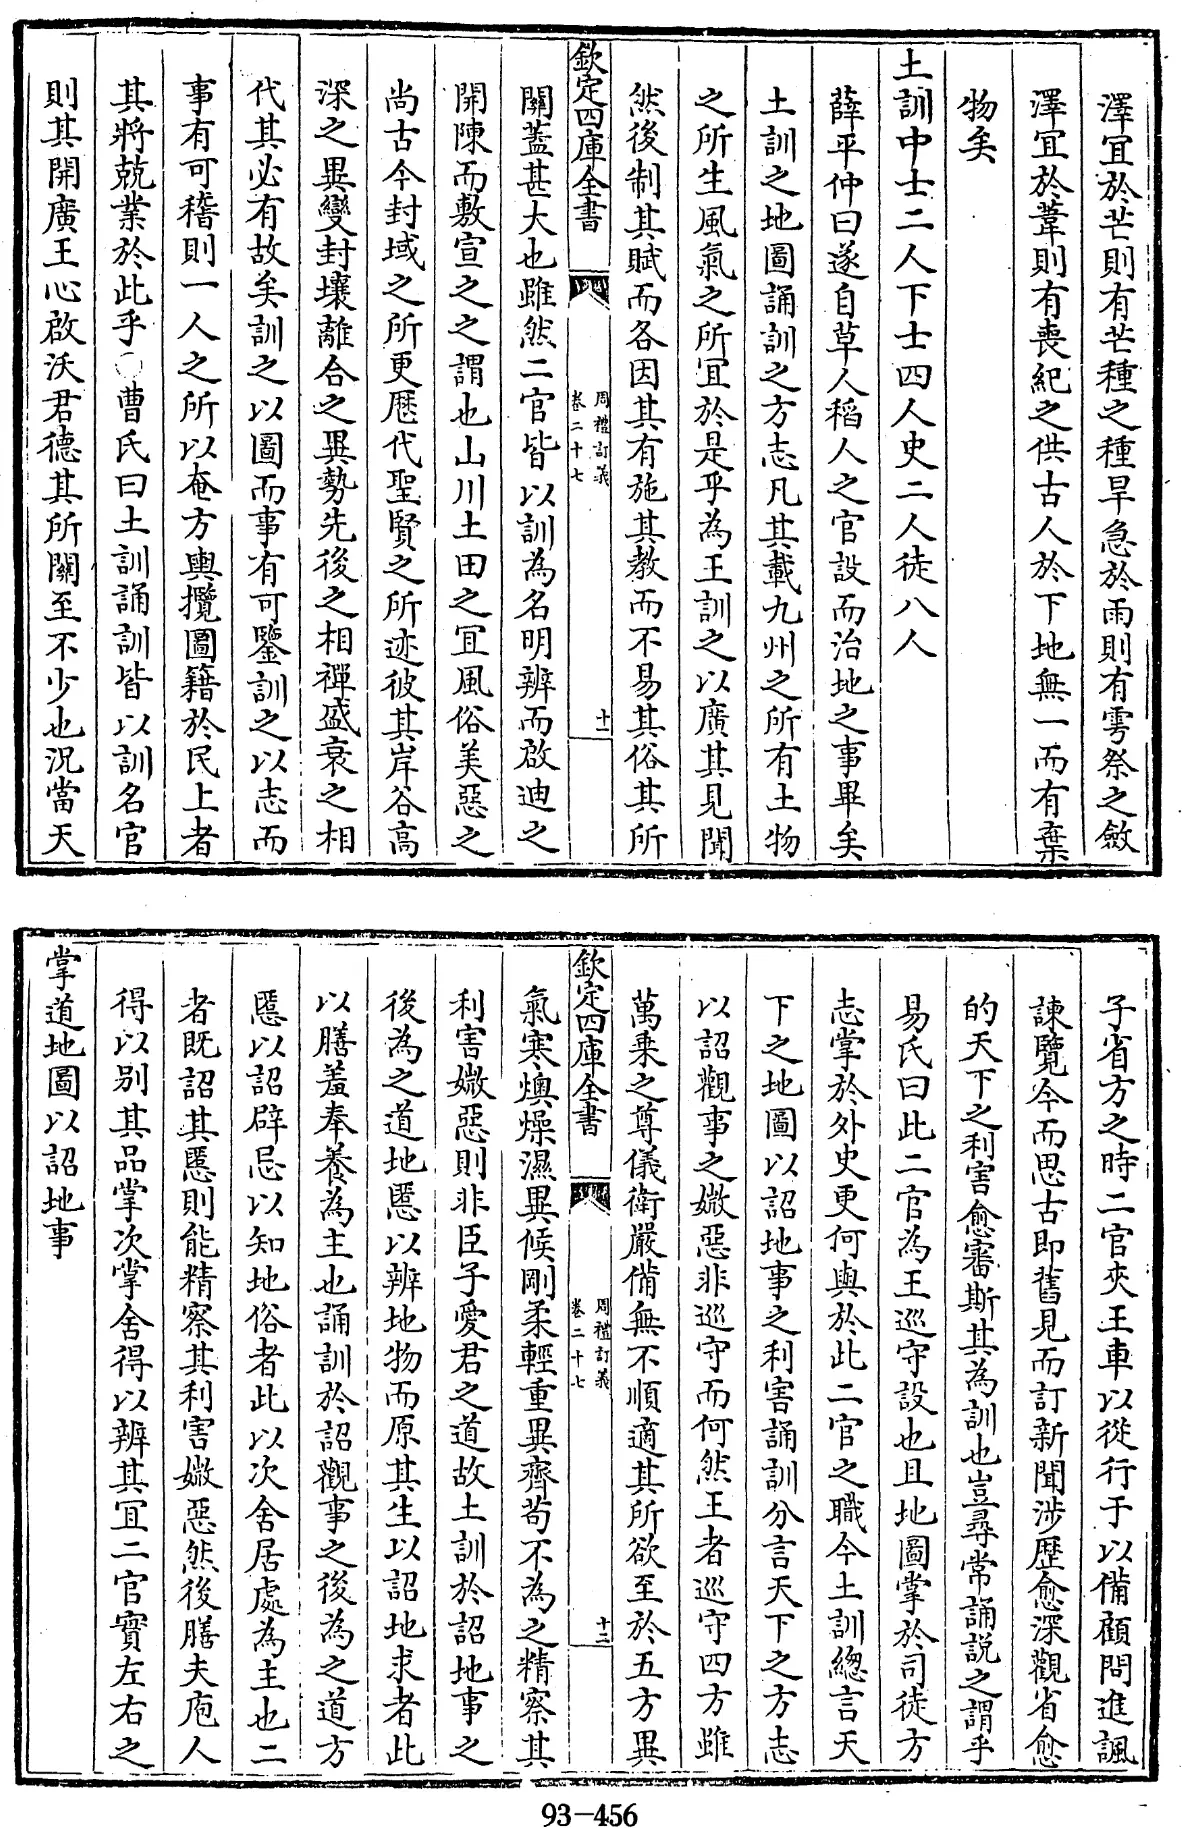 澤宜於芒則有芒種之種旱急於雨則有雩祭之斂
澤宜於葦則有喪紀之供古人於下地無一而有棄
物矣
土訓中士二人下士四人史二人徒八人
薛平仲曰遂自草人稻人之官設而治地之事畢矣
土訓之地圖誦訓之方志凡其載九州之所有土物
之所生風氣之所宜於是乎為王訓之以廣其見聞
然後制其賦而各因其有施其教而不易其俗其所
欽定四庫全書
周禮訂義
卷二十七
十一
關蓋甚大也雖然二官皆以訓為名明辨而啟迪之
開陳而敷宣之之謂也山川土田之宜風俗美惡之
尚古今封域之所更歷代聖賢之所迹彼其岸谷高
深之異變封壤離合之異勢先後之相禪盛衰之相
代其必有故矣訓之以圖而事有可鑒訓之以志而
事有可稽則一人之所以奄方輿攬圖籍於民上者
其將兢業於此乎○曹氏曰土訓誦訓皆以訓名官
則其開廣王心啟沃君德其所關至不少也況當天
子省方之時二官夾王車以從行于以備顧問進諷
諫覽今而思古即舊見而訂新聞涉歷愈深觀省愈
的天下之利害愈審斯其為訓也豈尋常誦說之謂乎
易氏曰此二官為王巡守設也且地圖掌於司徒方
志掌於外史更何與於此二官之職今土訓總言天
下之地圖以詔地事之利害誦訓分言天下之方志
以詔觀事之媺惡非巡守而何然王者巡守四方雖
萬乗之尊儀衛嚴備無不順適其所欲至於五方異
欽定四庫全書
周禮訂義
卷二十七
十二
氣寒燠燥濕異候剛柔輕重異齊茍不為之精察其
利害媺惡則非臣子愛君之道故土訓於詔地事之
後為之道地慝以辨地物而原其生以詔地求者此
以膳羞奉養為主也誦訓於詔觀事之後為之道方
慝以詔辟忌以知地俗者此以次舍居處為主也二
者既詔其慝則能精察其利害媺惡然後膳夫庖人
得以别其品掌次掌舍得以辨其宜二官實左右之
掌道地圖以詔地事
93-456